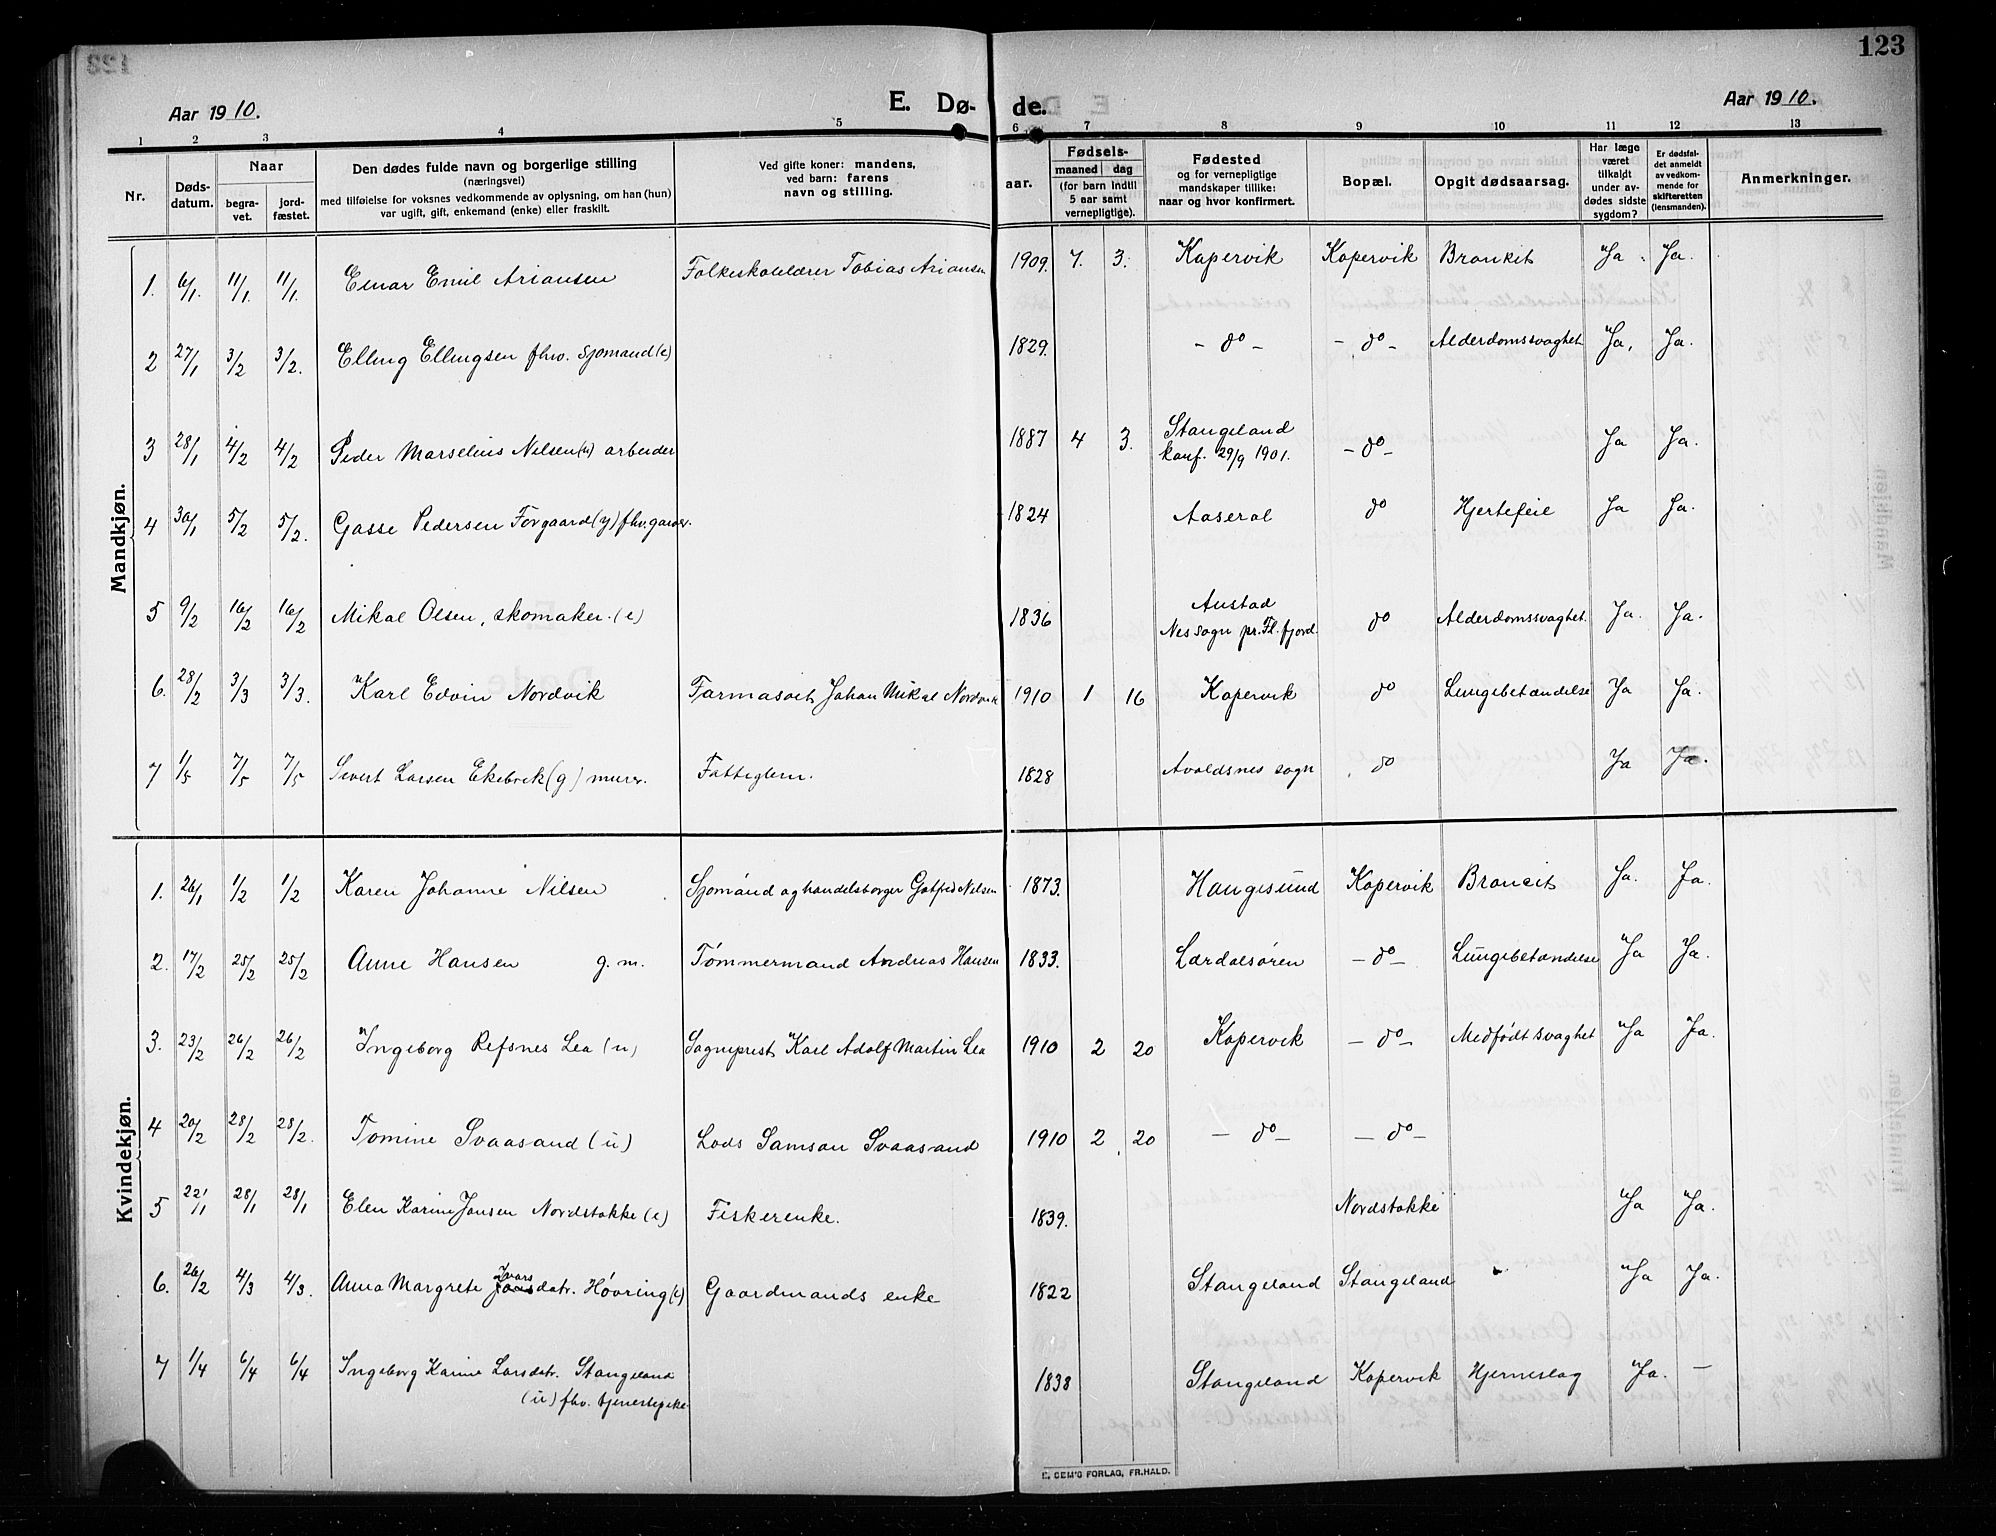 123
Aar 1910.
E. Dø-
de.
Aar 1910.
1 2 3 4 5 6 7 8 9 10 11 12 13
Nr.
Døds-
datum.
Naar
begra-
vet.
jord-
fæstet.
Den dødes fulde navn og borgerlige stilling
(næringsvei)
med tilføielse for voksnes vedkommende av oplysning, om han (hun)
var ugift, gift, enkemand (enke) eller fraskilt.
Ved gifte koner: mandens,
ved barn: farens
navn og stilling.
aar.
Fødsels-
maaned dag
(for barn indtil
5 aar samt
vernepligtige).
Fødested
og for vernepligtige
mandskaper tillike:
naar og hvor konfirmert.
Bopæl.
Opgit dødsaarsag.
Har læge
været
tilkaldt
under av-
dødes sidste
sygdom?
Er dødsfal-
det anmeldt
av vedkom-
mende for
skifteretten
(lensmanden).
Anmerkninger.
Mandkjøn.
1. 6/1. 11/1. 11/1. Einar Emil Ariansen Folkeskolelærer Tobias Ariansen 1909. 7. 3. Kopervik Kopervik Bronkit Ja. Ja.
2 27/1 3/2 3/2. Elling Ellingsen fhv. Sjømand (e) 1829. - do - - do - Alderdomssvaghet Ja, Ja.
3 28/1 4/2 4/2 Peder Marselius Nilsen (u) arbeider 1887 4 3. Stangeland - do - Ja Ja.
konf. 29/9 1901.
4 30/1 5/2 5/2. Gasse Pedersen Forgaard (g) fhv. garver. 1824 Aaseral do Hjertefeil Ja Ja.
5 9/2 16/2 16/2 Mikal Olsen, skomaker. (e) 1836 Austad do Alderdomssvaghet. Ja. Ja.
Nes sogn pr. Fl. fjord.
6. 28/2 3/3 3/3. Karl Edvin Nordvik Farmasøit Johan Mikal Nordvik 1910 1 16 Kopervik do Lungebetændelse Ja Ja.
7 1/5 7/5 7/5 Sivert Larsen Ekebrek (g) murer. Fattiglem. 1828 Avaldsnes sogn do Ja Ja.
Kvindekjøn.
1. 26/1 1/2 1/2 Karen Johanne Nilsen Sjømand og handelsborger Gotfred Nilsen 1873. Haugesund Kopervik Broncit Ja. Ja.
2. 17/2 25/2 25/2 Anne Hansen g. m. Tømmermand Andreas Hansen 1833. Lærdalsören - do - Lungebetændelse Ja Ja.
3. 23/2 26/2 26/2 Ingeborg Refsnes Lea (u) Sogneprest Karl Adolf Martin Lea 1910 2 20 Kopervik - do - Medfødt svaghet Ja Ja.
4 20/2 28/2 28/2. Tomine Svaasand (u) Lods Samson Svaasand 1910 2 20 - do - - do -
5 22/1 28/1 28/1 Elen Karine Jansen Nordstokke (e) Fiskerenke. 1839. Nordstokke Ja Ja.
6. 26/2 4/3 4/3. Anna Margrete Ivarsdatr. Høvring (e) Gaardmands enke 1822 Stangeland Stangeland Ja Ja.
7 1/4 6/4 6/4 Ingeborg Karine Larsdatr. Stangeland 1838 Stangeland Kopervik Hjerneslag Ja. -
(u) fhv. tjenestepike.
E. SEM'S FORLAG, FR.HALD.